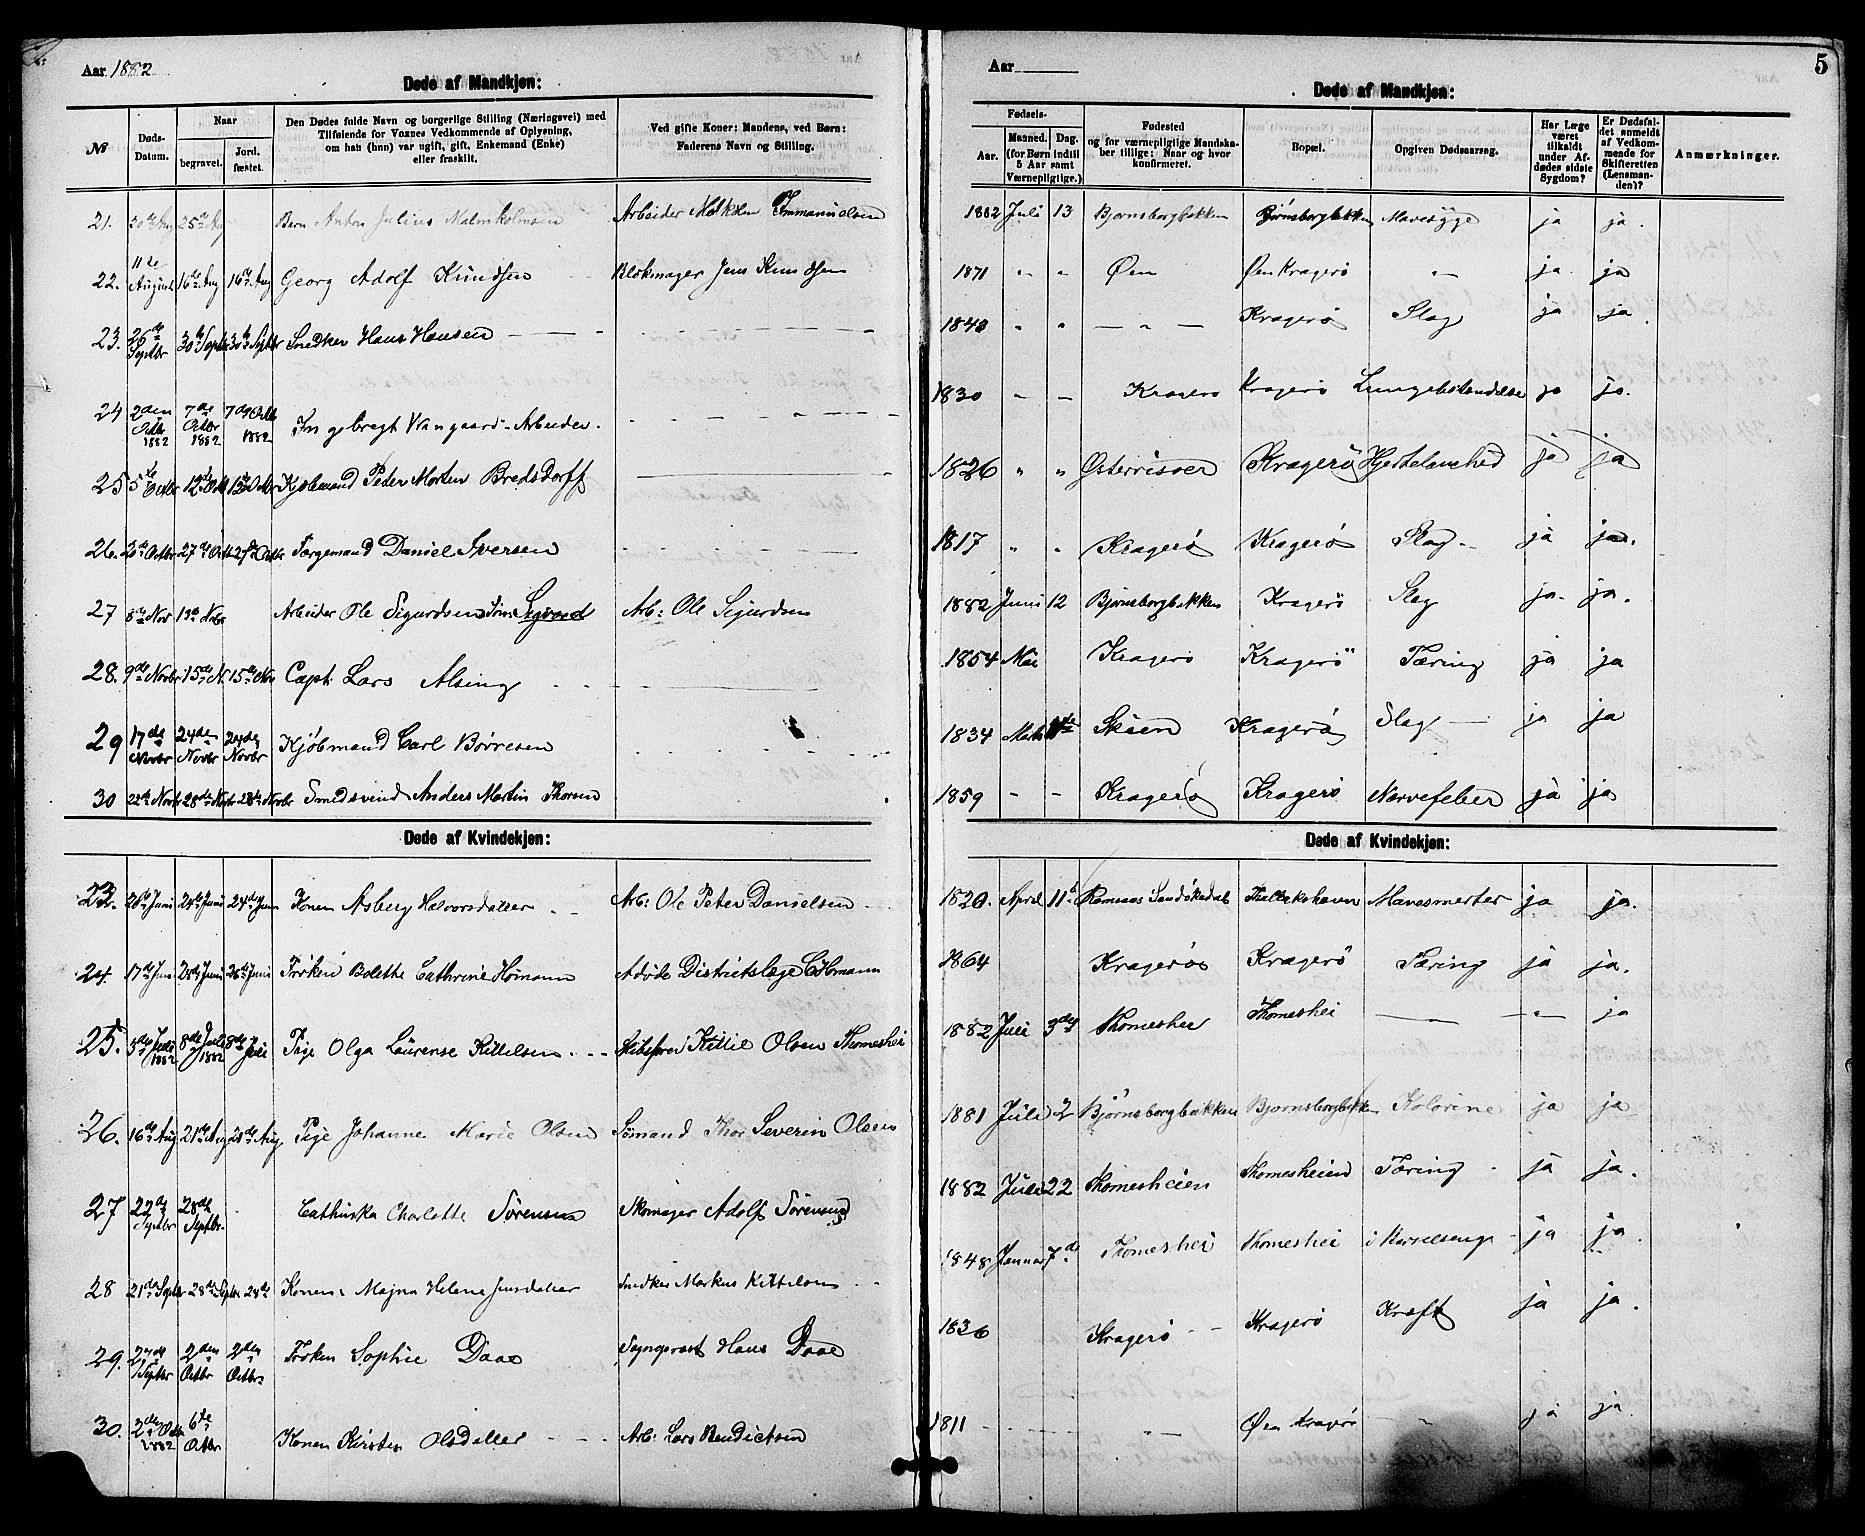 Aar 1882
Døde af Mandkjøn:
№
Døds-Datum.
Naar
begravet.
Jord.fæstet.
Den Dødes fulde Navn og borgerlige Stilling (Næringsvei) med
Tilføiende for Voxnes Vedkommende af Oplysning,
om han (hun) var ugift, gift, Enkemand (Enke)
eller fraskilt.
Ved gifte Koner: Mandens, ved Børn:
Faderens Navn og Stilling.
21. 20de Aug 25de Aug Barn Anton Julius Malmholmsen Arbeider Immanuelsen
22. 11te August 16de Aug 16de Aug Georg Adolf Knudsen Blokmager Jens Knudsen
23. 26de Septbr 30te Septbr 30te Septbr Snedker Hans Hansen
24 2den Octbr 1882 7de Octbr 1882 7de Octb 1882 Ingebregt Wangaard - Arbeider.
25 5te Octbr 12te Oct Kjøbmand Peter Morten Bredsdorff
26. 27de Octb 27de Octbr Færgemand Daniel Iversen
27 8de Nov 13de Nvbr Arbeider Ole Sigurdsens Søn Sigvard Arb: Ole Sigurdsen
28. 9de Novbr 15de N. 15de Nov Capt. Lars Alsing
29 17de Novbr 24de Novbr 24de Novbr Kjøbmand Carl Børresen
30 22de Novbr 28de Novbr 28de Novbr Smedsvend Anders Martin Thorsen
Døde af Kvindekjøn:
23. 20de Juni 24de Juni 24de Juni Konen Asberg Halvorsdatter Arb: Ole Peter Danielsen
24. 17de Juni Frøken Bolette Cathrine Homann Afdøde Districtslæge C Homann
25. 5de Juli 1882 8de Juli 1882 8de Juli Pige Olga Laurense Kittelsen Kittil Olsen Thomeshei
26. 16de Aug 21de Aug 21de Aug Pige Johanne Marie Olsen Sømand Thor Severin Olsen
27 22de Septbr 28de Septbr. Cathinka Charlotte Sørensen Skomager Adolf Sørensen
28 21de Septbr 28de Septbr 28de Konen Majna Helene Jensdatter Snedker Markus Kittelsen
29. 27de Septbr 2den Octbr 2den Octbr. Frøken Sophie Daae Sogneprest Hans Daae
30. 2den Octb 1882 6te Octbr Konen Kirsten Olsdatter Arb: Lars Bendictsen
Aar
5
Døde af Mandkjøn:
Fødsels-
Aar.
Maaned. Dag.
(for Børn indtil
5 Aar samt
Værnepligtige.)
Fødested
og for værnepligtige Mandska-
ber tillige: Naar og hvor
konfirmeret.
Bopæl.
Opgiven Dødsaarsag.
Har Læge
været
tilkaldt
under Af-
dødes sidste
Sygdom?
Er Dødsfal-
det anmeldt
af Vedkom-
mende for
Skifteretten
(Lensman-
den)?
Anmærkninger.
1882 Juli 13 Bjørnsborgbakken Bjørnsborgbakken Mavesyge ja ja.
1871 " " Øen Øen Kragerø — " — ja ja
1840 " " — " — Kragerø Slag ja ja
1830 — — Kragerø Kragerø Lungebetændelse ja ja.
1826 " " Østerrisøer Kragerø ja ja
1817 " " Kragerø Kragerø Slag - ja ja.
1882 Juni 12 Bjørnsborgbakken Kragerø Slag ja. ja.
1854 Mai Kragerø Kragerø Tæring ja ja
1834 Marts Skien Kragerø Slag — ja ja
1859 - - Kragerø Kragerø Nervefeber ja ja
Døde af Kvindekjøn:
1820. April 11te Sandøkedal ja ja.
1864 Kragerø Kragerø Tæring ja ja.
1882 Juli 3die Thomeshei Thomeshei — " — ja
1881 Juli 2 Bjørnsborgbakken Bjørnsborgbakk Kolorine ja ja
1882 Juli 22 Thomesheien Thomesheien Tæring - ja ja.
1848 Januar 7de Thomeshei Thomeshei i Barselseng - ja ja
1836 Kragerø - - Kragerø Kræft ja ja.
1811 - " - Øen Kragerø " ja ja.